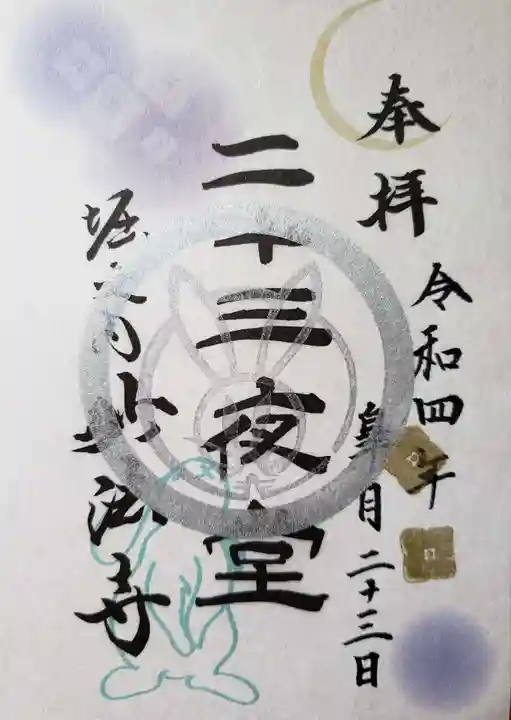 奉拝
令和四年
皐月二十三日
二十三夜堂
堀之内妙法寺